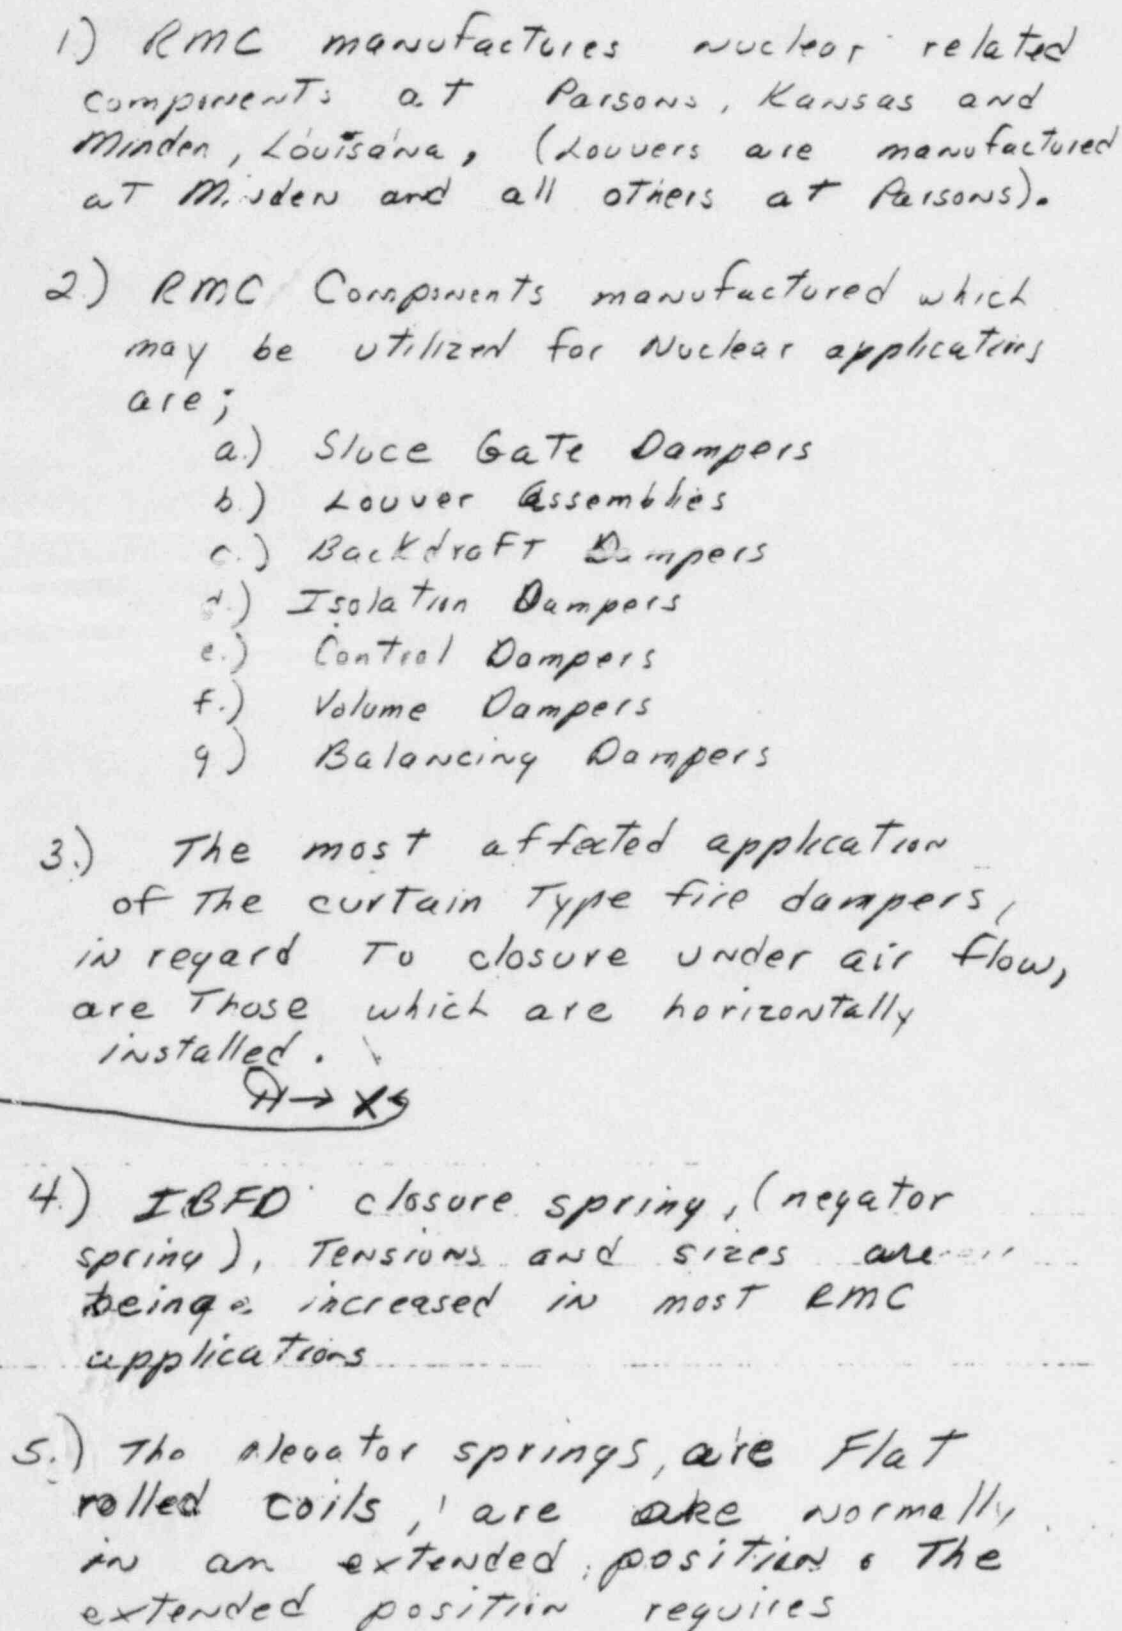 1) RMC manufactures nuclear related
components at Parsons, Kansas and
Minden, Louisana, (Louvers are manufactured
at Minden and all others at Parsons).
2.) RMC Components manufactured which
may be utilized for Nuclear applications
are;
a.) Sluce Gate Dampers
b.) Louver Assemblies
c.) Backdraft Dampers
d.) Isolation Dampers
e.) Control Dampers
f.) Volume Dampers
g) Balancing Dampers
3.) The most affected application
of the curtain Type fire dampers,
in regard To closure under air flow,
are Those which are horizontally
installed.
4.) IBFD closure spring, (negator
spring), Tensions and sizes are
being increased in most RMC
applications
5.) The negator springs, are Flat
rolled coils, are are normally
in an extended position. The
extended position requires